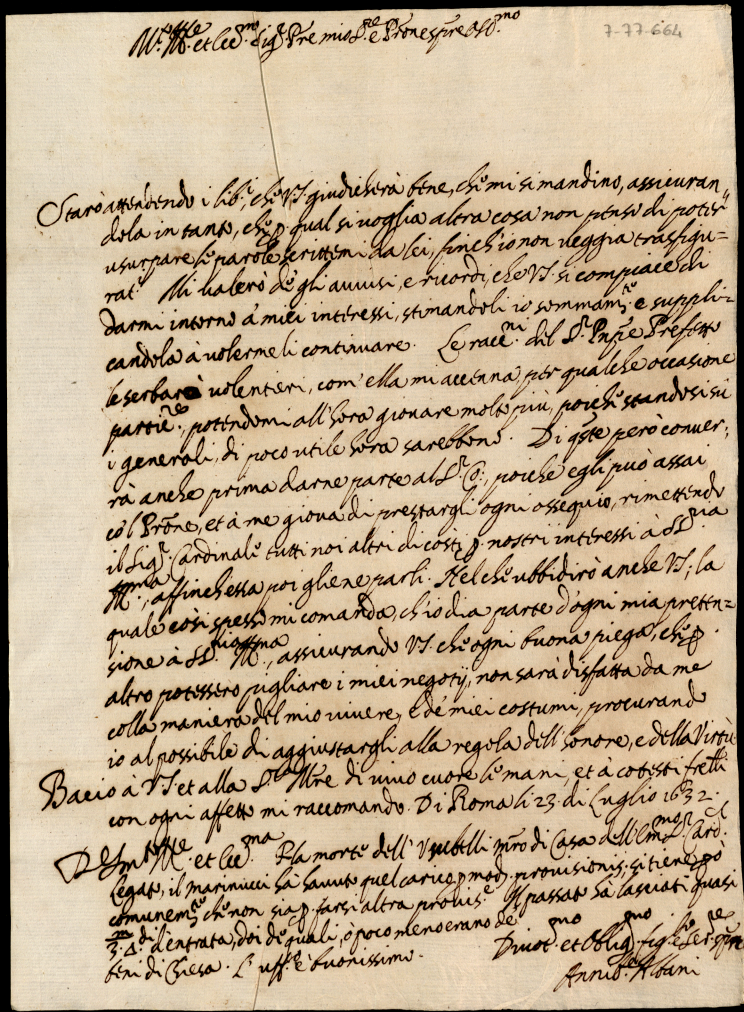 7-77-664
Starò attendendo i lib.i, che VS giudicherà bene, che mi si mandino, assicuran
dola in tanto, che p qual si voglia altra cosa non penso di poter
usurpare le parole scrittemi da lei, finch'io non veggia trasfigu=
rat. Mi valerò de gli avvisi, e ricordi, che VS. si compiace di
darmi intorno à miei interessi, stimandoli io sommam.te e suppli=
candola à volermeli continuare. Le racc.ni del S.r Pnpe Prefetto
le serbarò volentieri, com'ella mi accenna, per qualche occasione
partic.re, potendomi all'hora giovare molto più, poiche standosi sù
i generali, di poco utile hora sarebbono. Di q̃ste però conver,
rà anche prima darne parte al S.r C., poiche egli può assai
co'l Prñe, et à me giova di prestargli ogni ossequio, rimettendo
il Sig.r Cardinale tutti noi altri di costì p nostri interessi à SS.ria
Ill.ma, affinch'essa poi gliene parli. Nel che ubbidirò anche VS; la
quale così spesso mi comanda, ch'io dia parte d'ogni mia preten=
sione à SS. Ill.ma, assicurando VS. che ogni buona piega, che p
altro potessero pigliare i miei negotij, non sarà disfatta da me
colla maniera del mio vivere, e de miei costumi, procurando
io al possibile di aggiustargli alla regola dell'honore, e della Virtù
Bacio à VS et alla S.ra Mr̃e di vivo cuore le mani, et à cotesti fr̃elli
con ogni affetto mi raccomando. Di Roma li 23. di Luglio 1632.
Di VS molto Ill.re et Ecc.ma P la morte dell'Umbelli mr̃o di Casa dell'Em.mo S.r Card.
Legato, il marinucci hà havuto quel carico p mod. provisionis; si tiene però
comunem.te che non sia p farsi altra provis.e Il passato hà lasciati quasi
3 d'entrata, doi de quali, ò poco meno erano de
beni di Chiesa. L'uff.o è buonissimo. Divot.mo et Oblig.mo figlio e ser.re
Annib.le Albani